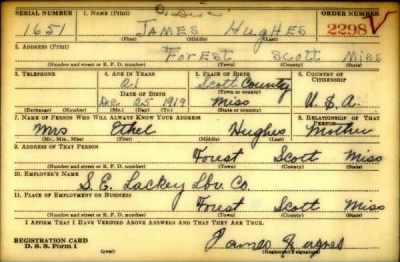 SERIAL NUMBER 1. NAME (Print) ORDER NUMBER
1651 JAMES HUGHES 2298
(First) (Middle) (Last)
2. ADDRESS (Print)
FOREST SCOTT MISS
(Number and street or R. F. D. number) (Town) (County) (State)
3. TELEPHONE 4. AGE IN YEARS 5. PLACE OF BIRTH 6. COUNTRY OF CITIZENSHIP
21 Scott County
DATE OF BIRTH (Town or county)
Dec 25 1919 Miss U.S.A.
(Exchange) (Number) (Mo.) (Day) (Yr.) (State or country)
7. NAME OF PERSON WHO WILL ALWAYS KNOW YOUR ADDRESS 8. RELATIONSHIP OF THAT PERSON
Mrs Ethel Hughes Mother
(Mr., Mrs., Miss) (First) (Middle) (Last)
9. ADDRESS OF THAT PERSON
Forest Scott Miss
(Number and street or R. F. D. number) (Town) (County) (State)
10. EMPLOYER'S NAME
S. E. Lackey Lbr. Co.
11. PLACE OF EMPLOYMENT OR BUSINESS
Forest Scott Miss
(Number and street or R. F. D. number) (Town) (County) (State)
I AFFIRM THAT I HAVE VERIFIED ABOVE ANSWERS AND THAT THEY ARE TRUE.
REGISTRATION CARD
D. S. S. Form 1 (over) James Hughes
(Registrant's signature)